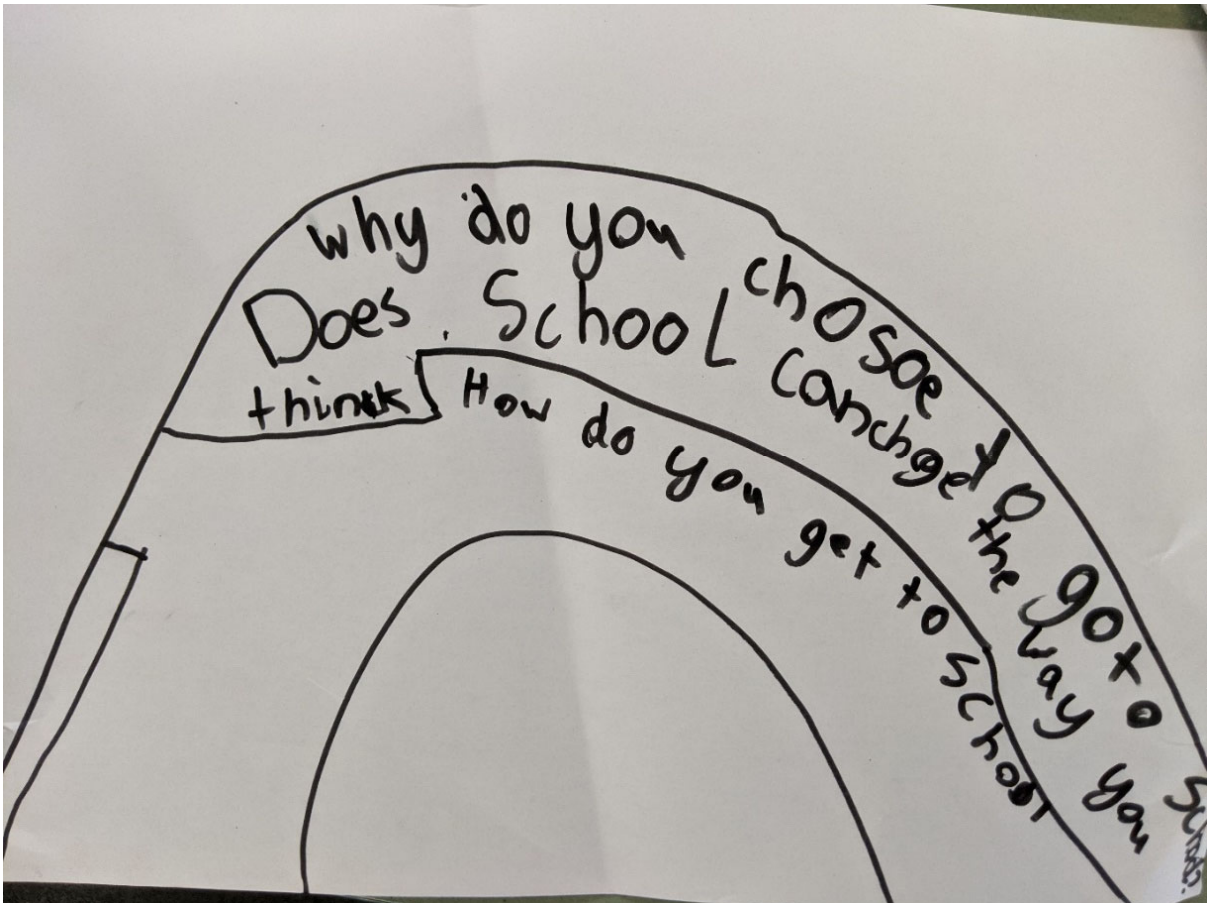 why do you chosoe to go to school?
Does school canchge the way you
think
How do you get to school